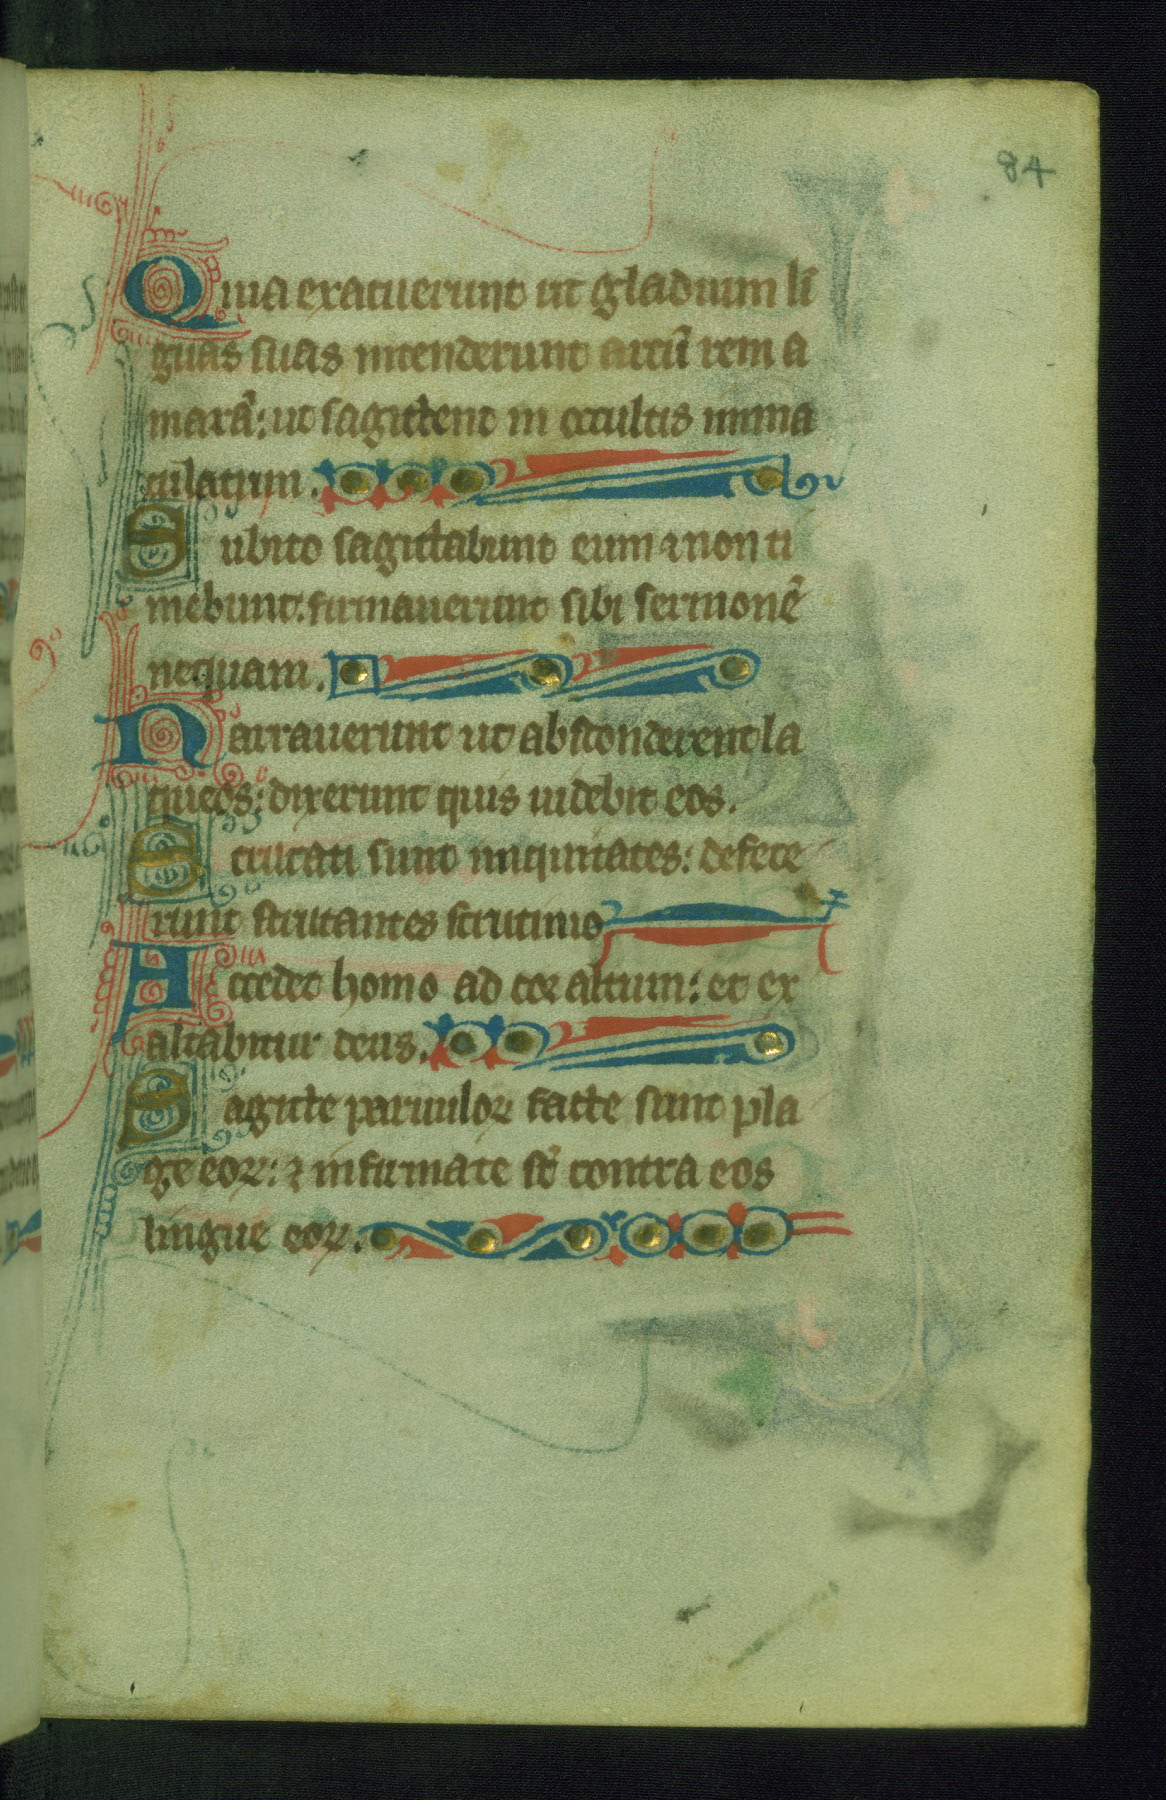 84
Quia exacuerunt ut gladium li
guas suas intenderunt arcū rem a
marā: ut sagittent in occultis imma
culatum.
Subito sagittabunt eum ⁊ non ti
mebunt. firmauerunt sibi sermonē
nequam.
Narrauerunt ut absconderent la
queos: dixerunt quis uidebit eos.
Scrutati sunt iniquitates: defece
runt scrutantes scrutinio
Accedet homo ad cor altum: et ex
altabitur deus.
Sagitte paruuloꝝ facte sunt pla
ge eoꝝ: ⁊ infirmate st̄ contra eos
lingue eoꝝ.